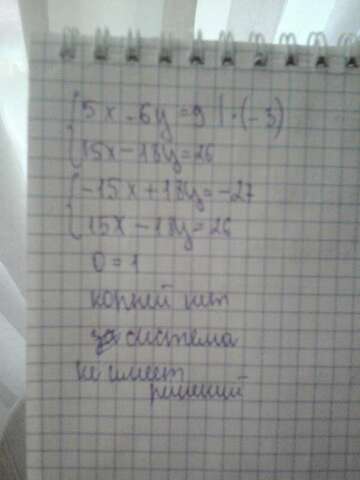 5x - 6y = 9 | · (-3)
15x - 18y = 26
-15x + 18y = -27
15x - 18y = 26
0 = 1
корней нет
система
не имеет
решений